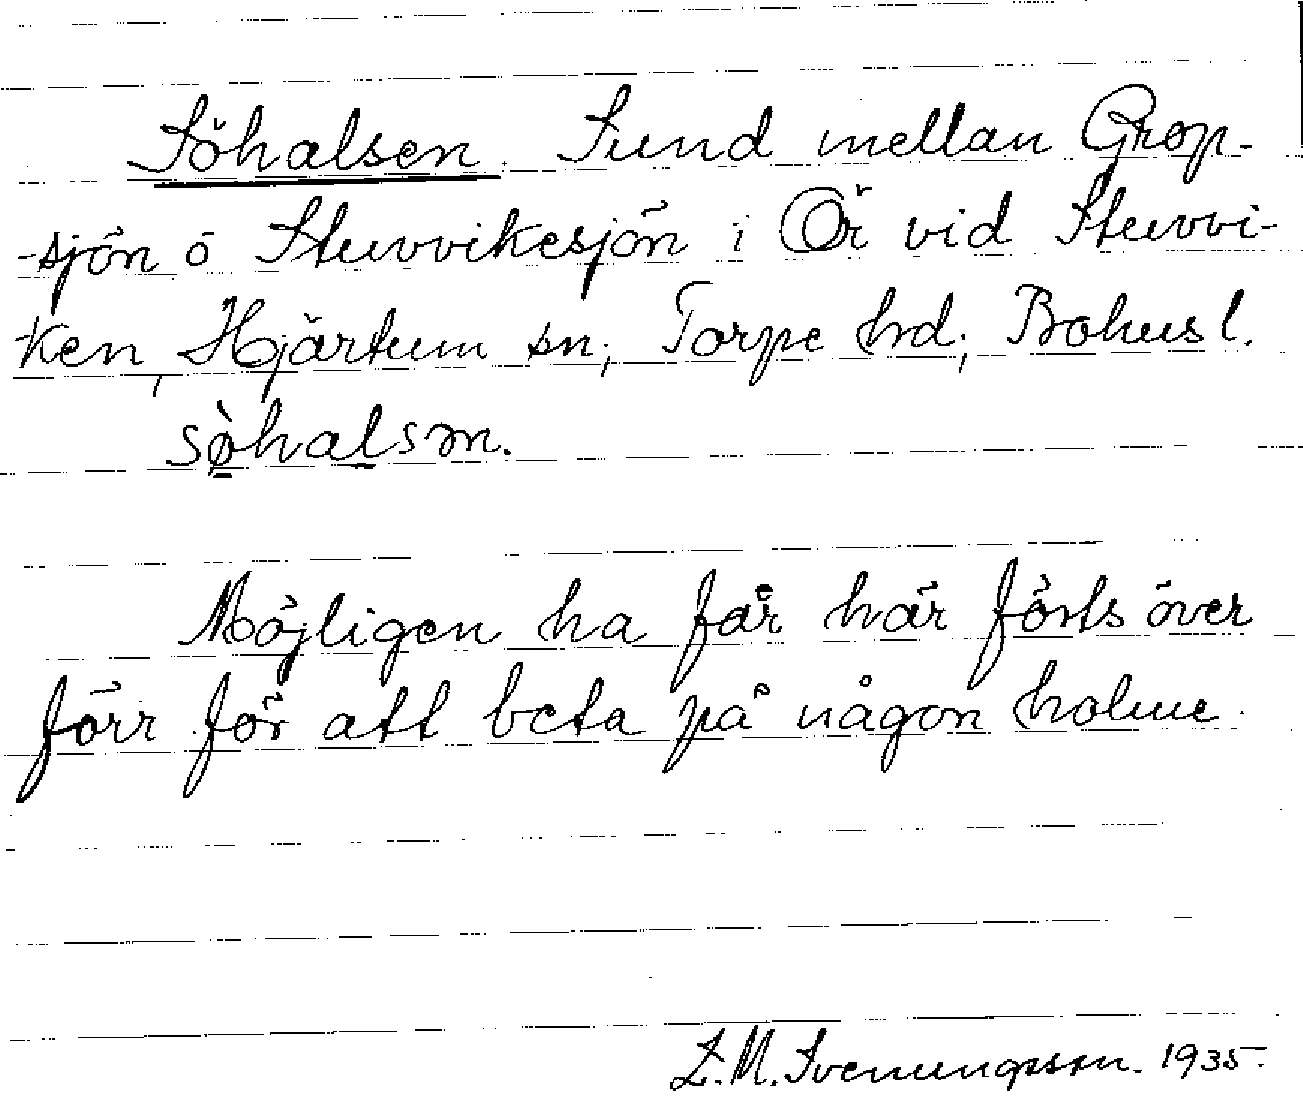 Söhalsen. Sund mellan Grop-
-sjön o Stuvvikesjön i Ör vid Stuvvi-
-ken, Hjärtum sn; Torpe hd; Bohusl.
sòhalsen.
Möjligen ha får här förts över
förr för att beta på någon holme.
L.M. Svenungsson. 1935.